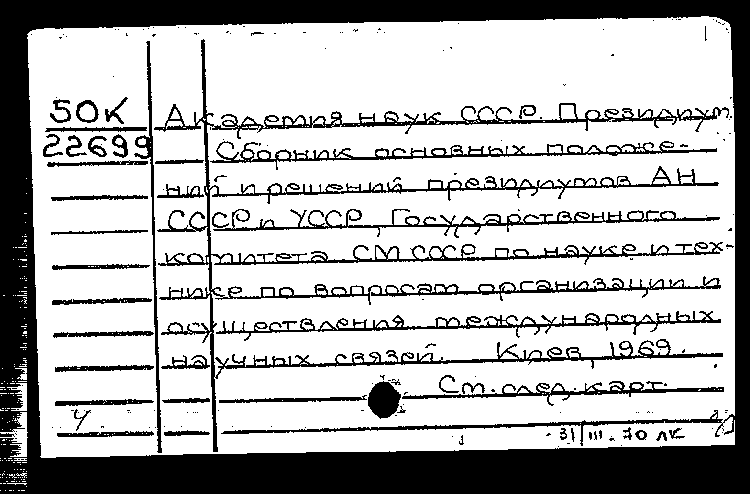 50К
22699
Академия наук СССР. Президиум.
Сборник основных положе-
ний и решений президиумов АН
СССР и УССР, Государственного
комитета СМ СССР по науке и тех-
нике по вопросам организации и
осуществления международных
научных связей. Киев, 1969.
См. след. карт.
У
31/III-70 ЛК